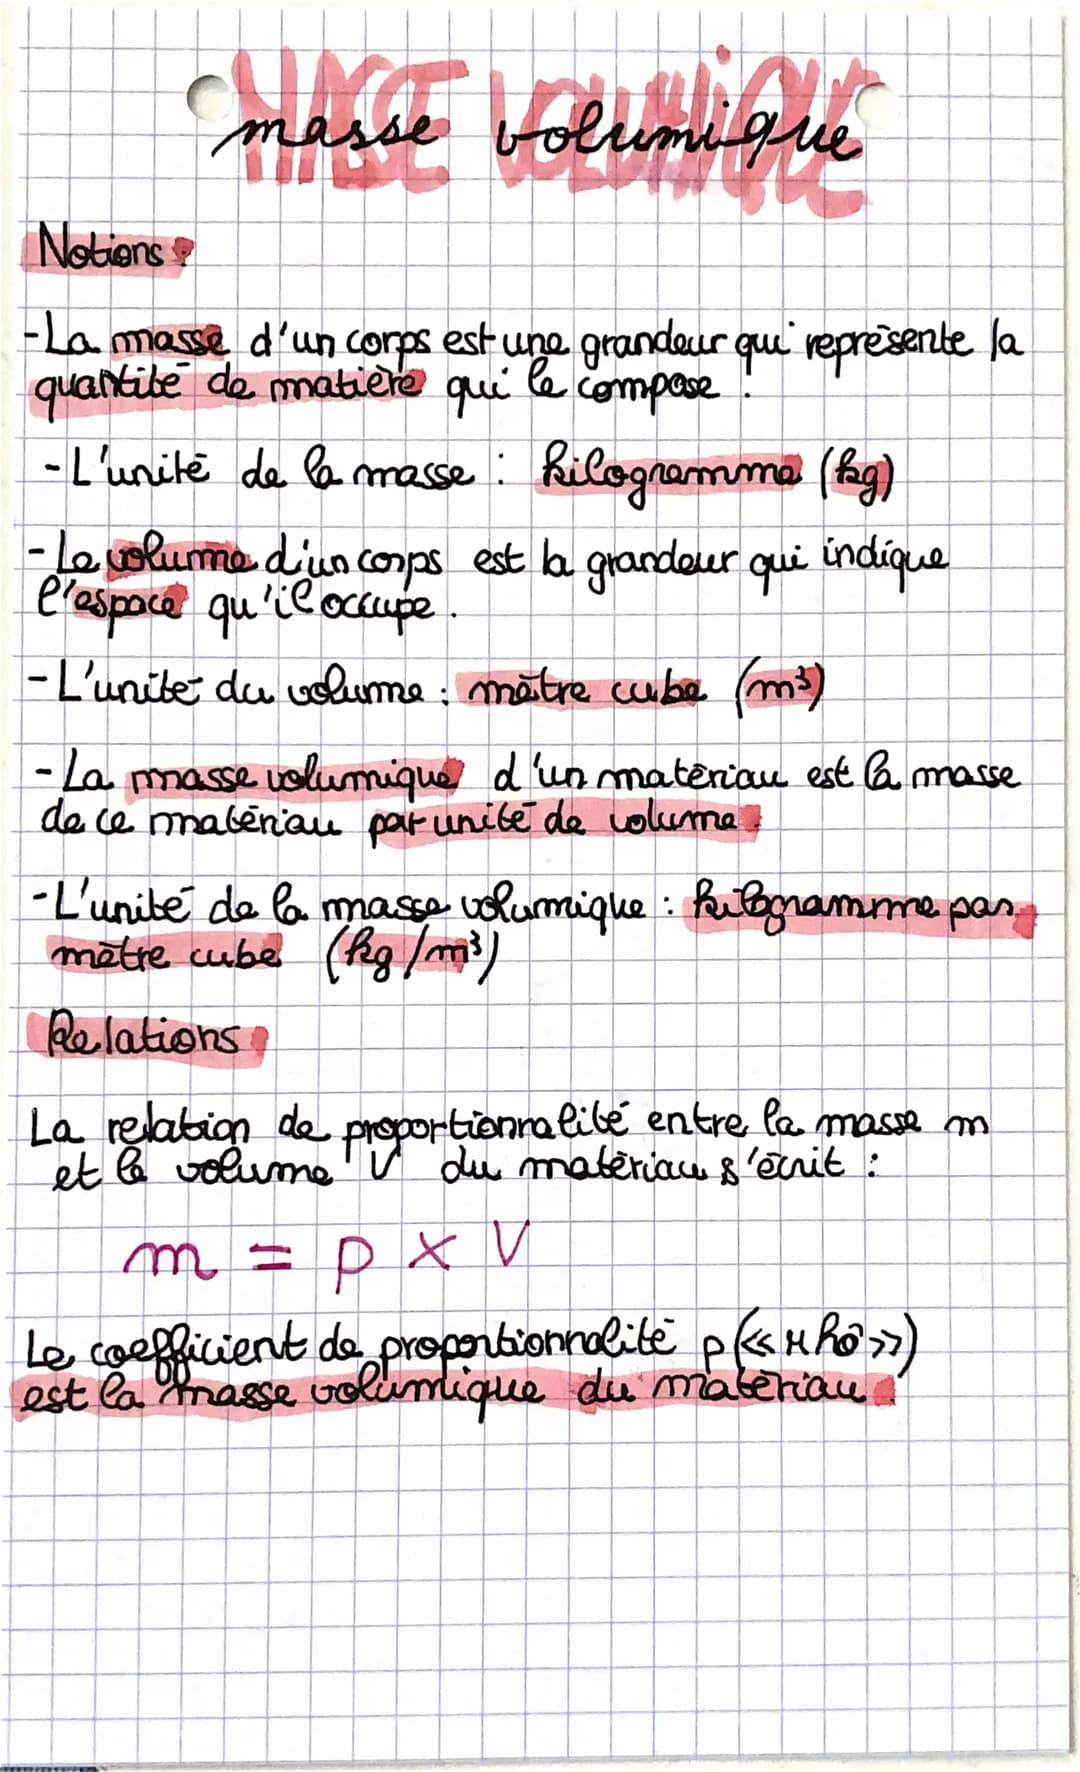 MASSE VOLUMIQUE
masse volumique
Notions :
-La masse d'un corps est une grandeur qui représente la
quantité de matière qui le compose.
-L'unité de la masse : kilogramme (kg)
-Le volume d'un corps est la grandeur qui indique
l'espace qu'il occupe.
-L'unité du volume : mètre cube (m³)
-La masse volumique d'un matériau est la masse
de ce matériau par unité de volume.
-L'unité de la masse volumique : kilogramme par
mètre cube (kg/m³)
Relations :
La relation de proportionnalité entre la masse m
et le volume V du matériau s'écrit :
m = ρ × V
Le coefficient de proportionnalité ρ («rhô»)
est la masse volumique du matériau.